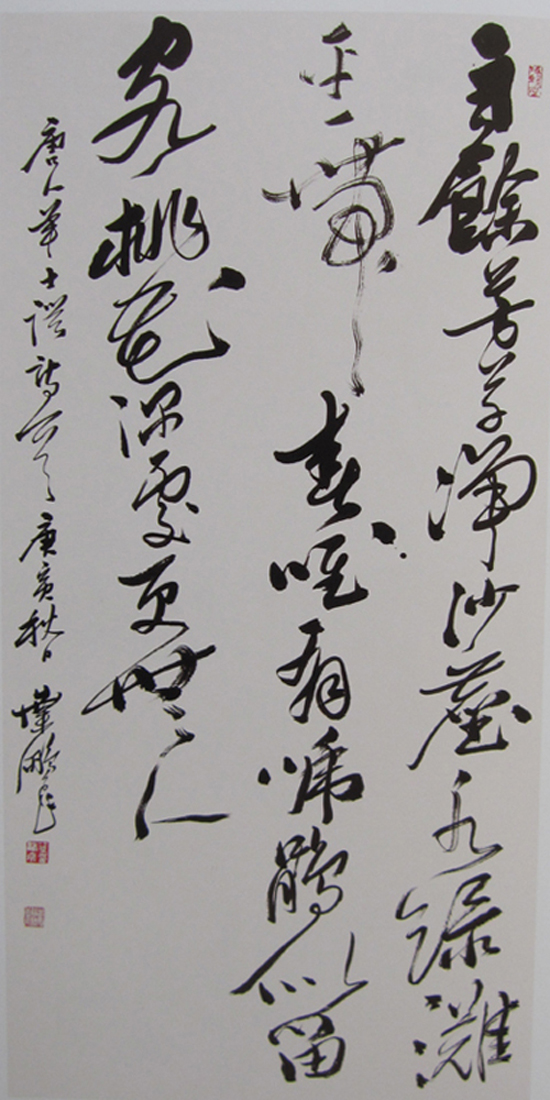 雨餘芳草净沙塵水綠灘
平一帶春唯有啼鵑似留
客桃花深處更無人
唐人羊士諤詩 庚寅秋日 葉鵬飛